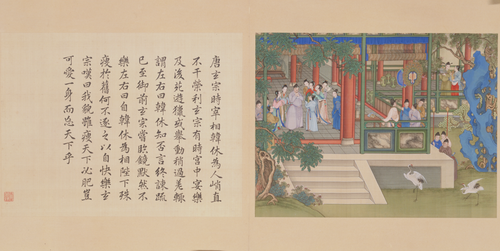 唐玄宗時宰相韓休為人峭直
不干榮利玄宗有時宮中宴樂
及後苑遊獵或舉動稍過差輒
謂左右曰韓休知否言終諫疏
已至御前玄宗嘗臨鏡默然不
樂左右曰自韓休為相陛下殊
瘦於舊何不逐之以自快樂玄
宗嘆曰我貌雖瘦天下必肥豈
可愛一身而忘天下乎